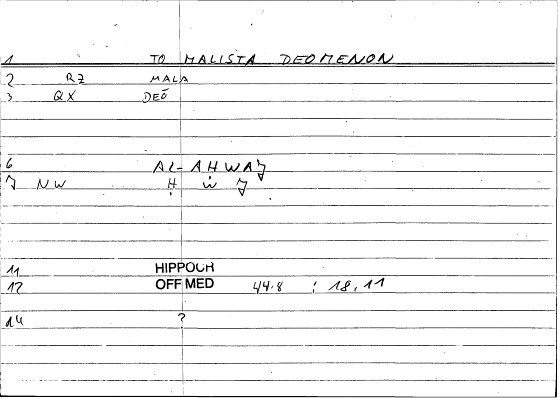 1 TO MALISTA DEOMENON
2 RZ MALA
3 QX DEŌ
6 AL-AḤWAǦ
7 NW Ḥ W Ǧ
11 HIPPOCR
12 OFF MED 44.8 : 18,11
14 ?